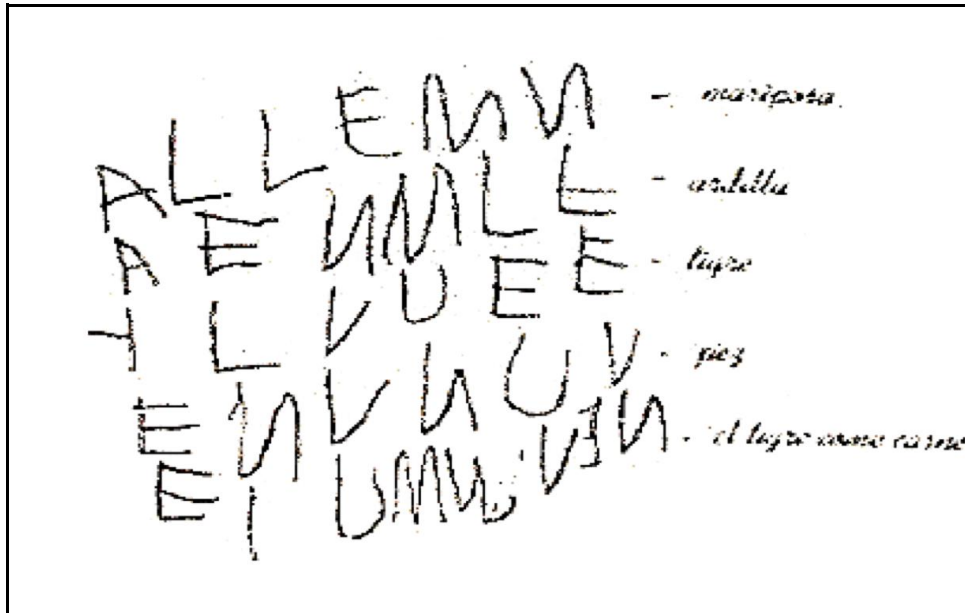 A L L E M N - mariposa
A E N M L E - ardilla
L V U E E - tigre
E N V N U V - pez
E I U M V N - el tigre come carne